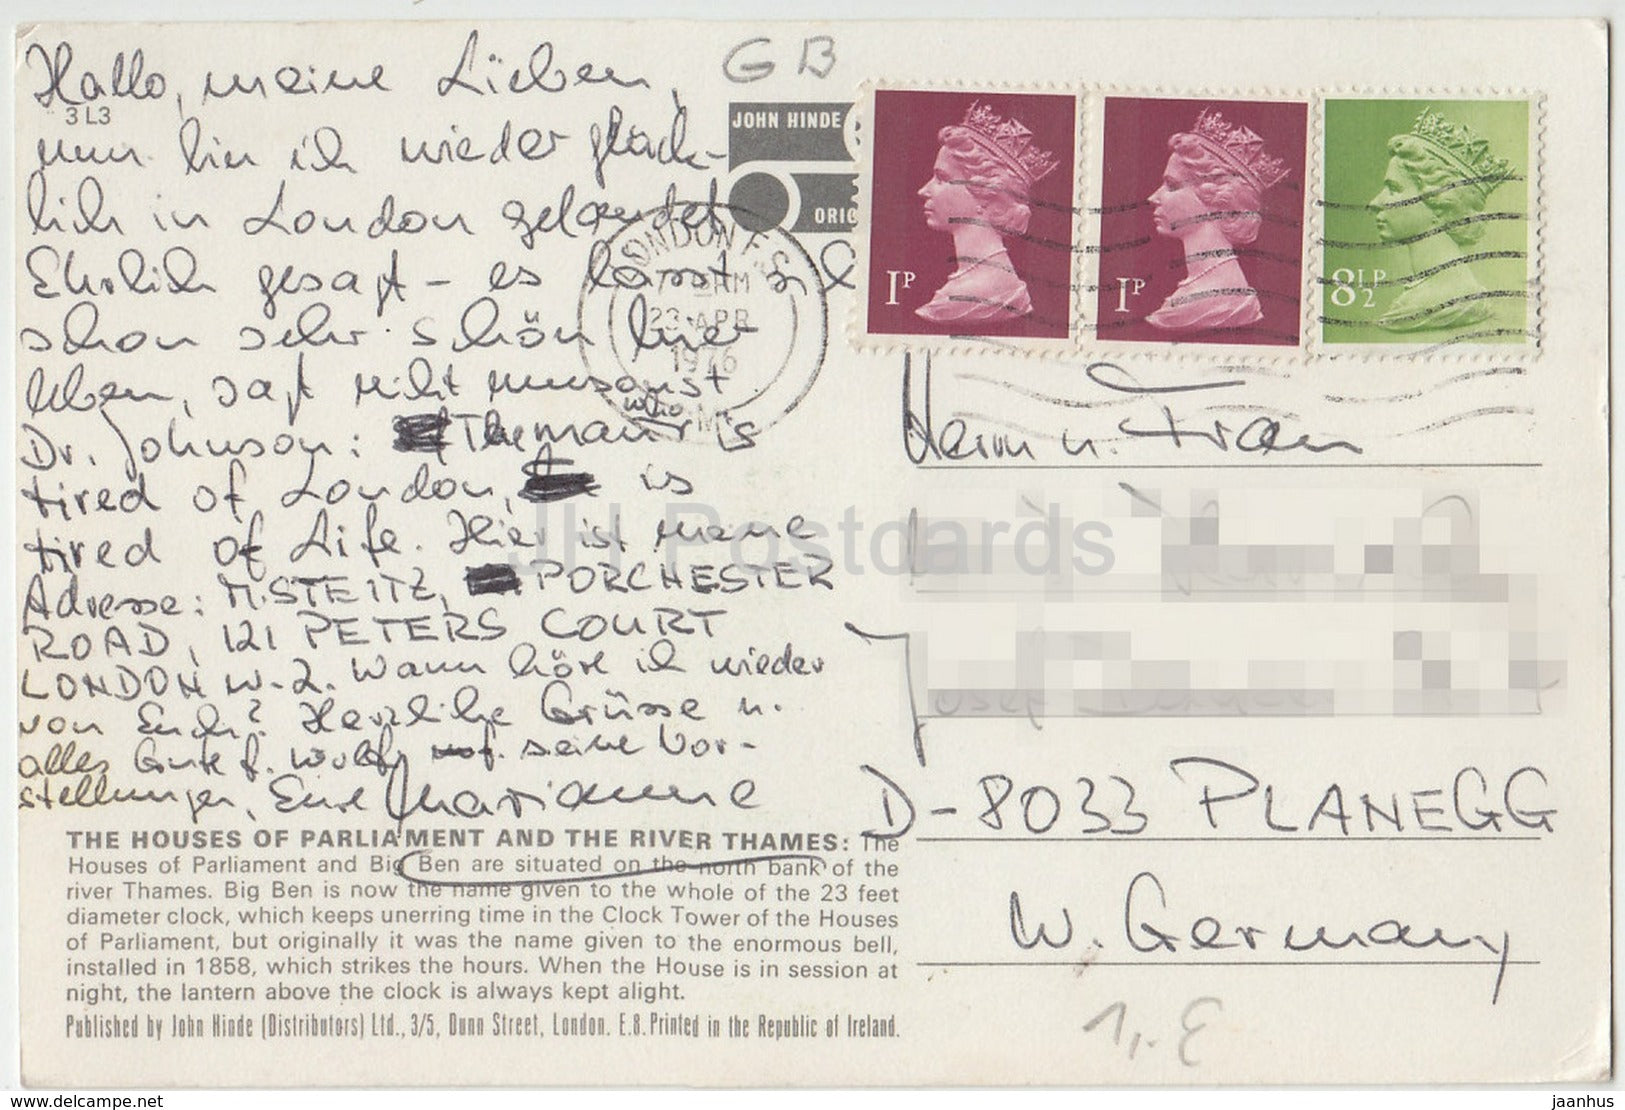 Hallo, meine Lieben,
3L3
nun bin ich wieder glück-
lich in London gelandet
Ehrlich gesagt - es lässt sich
schon sehr schön hier
leben, sagt nicht umsonst
Dr. Johnson: The man who is
tired of London, is
tired of Life. Hier ist meine
Adresse: M. STEITZ, PORCHESTER
ROAD, 121 PETERS COURT
LONDON W-2. Wann höre ich wieder
von Euch? Herzliche Grüsse u.
alles Gute f. Wolf seine Vor-
stellungen, Eure Marianne
THE HOUSES OF PARLIAMENT AND THE RIVER THAMES: The
Houses of Parliament and Big Ben are situated on the north bank of the
river Thames. Big Ben is now the name given to the whole of the 23 feet
diameter clock, which keeps unerring time in the Clock Tower of the Houses
of Parliament, but originally it was the name given to the enormous bell,
installed in 1858, which strikes the hours. When the House is in session at
night, the lantern above the clock is always kept alight.
Published by John Hinde (Distributors) Ltd., 3/5, Dunn Street, London. E.8. Printed in the Republic of Ireland.
GB
JOHN HINDE
ORIG
LONDON F.S.
23 APR
1976
1P
1P
8½P
Herrn u. Frau
Josef
D-8033 PLANEGG
W. Germany
1,- E
JH Postcards
www.delcampe.net
jaanhus